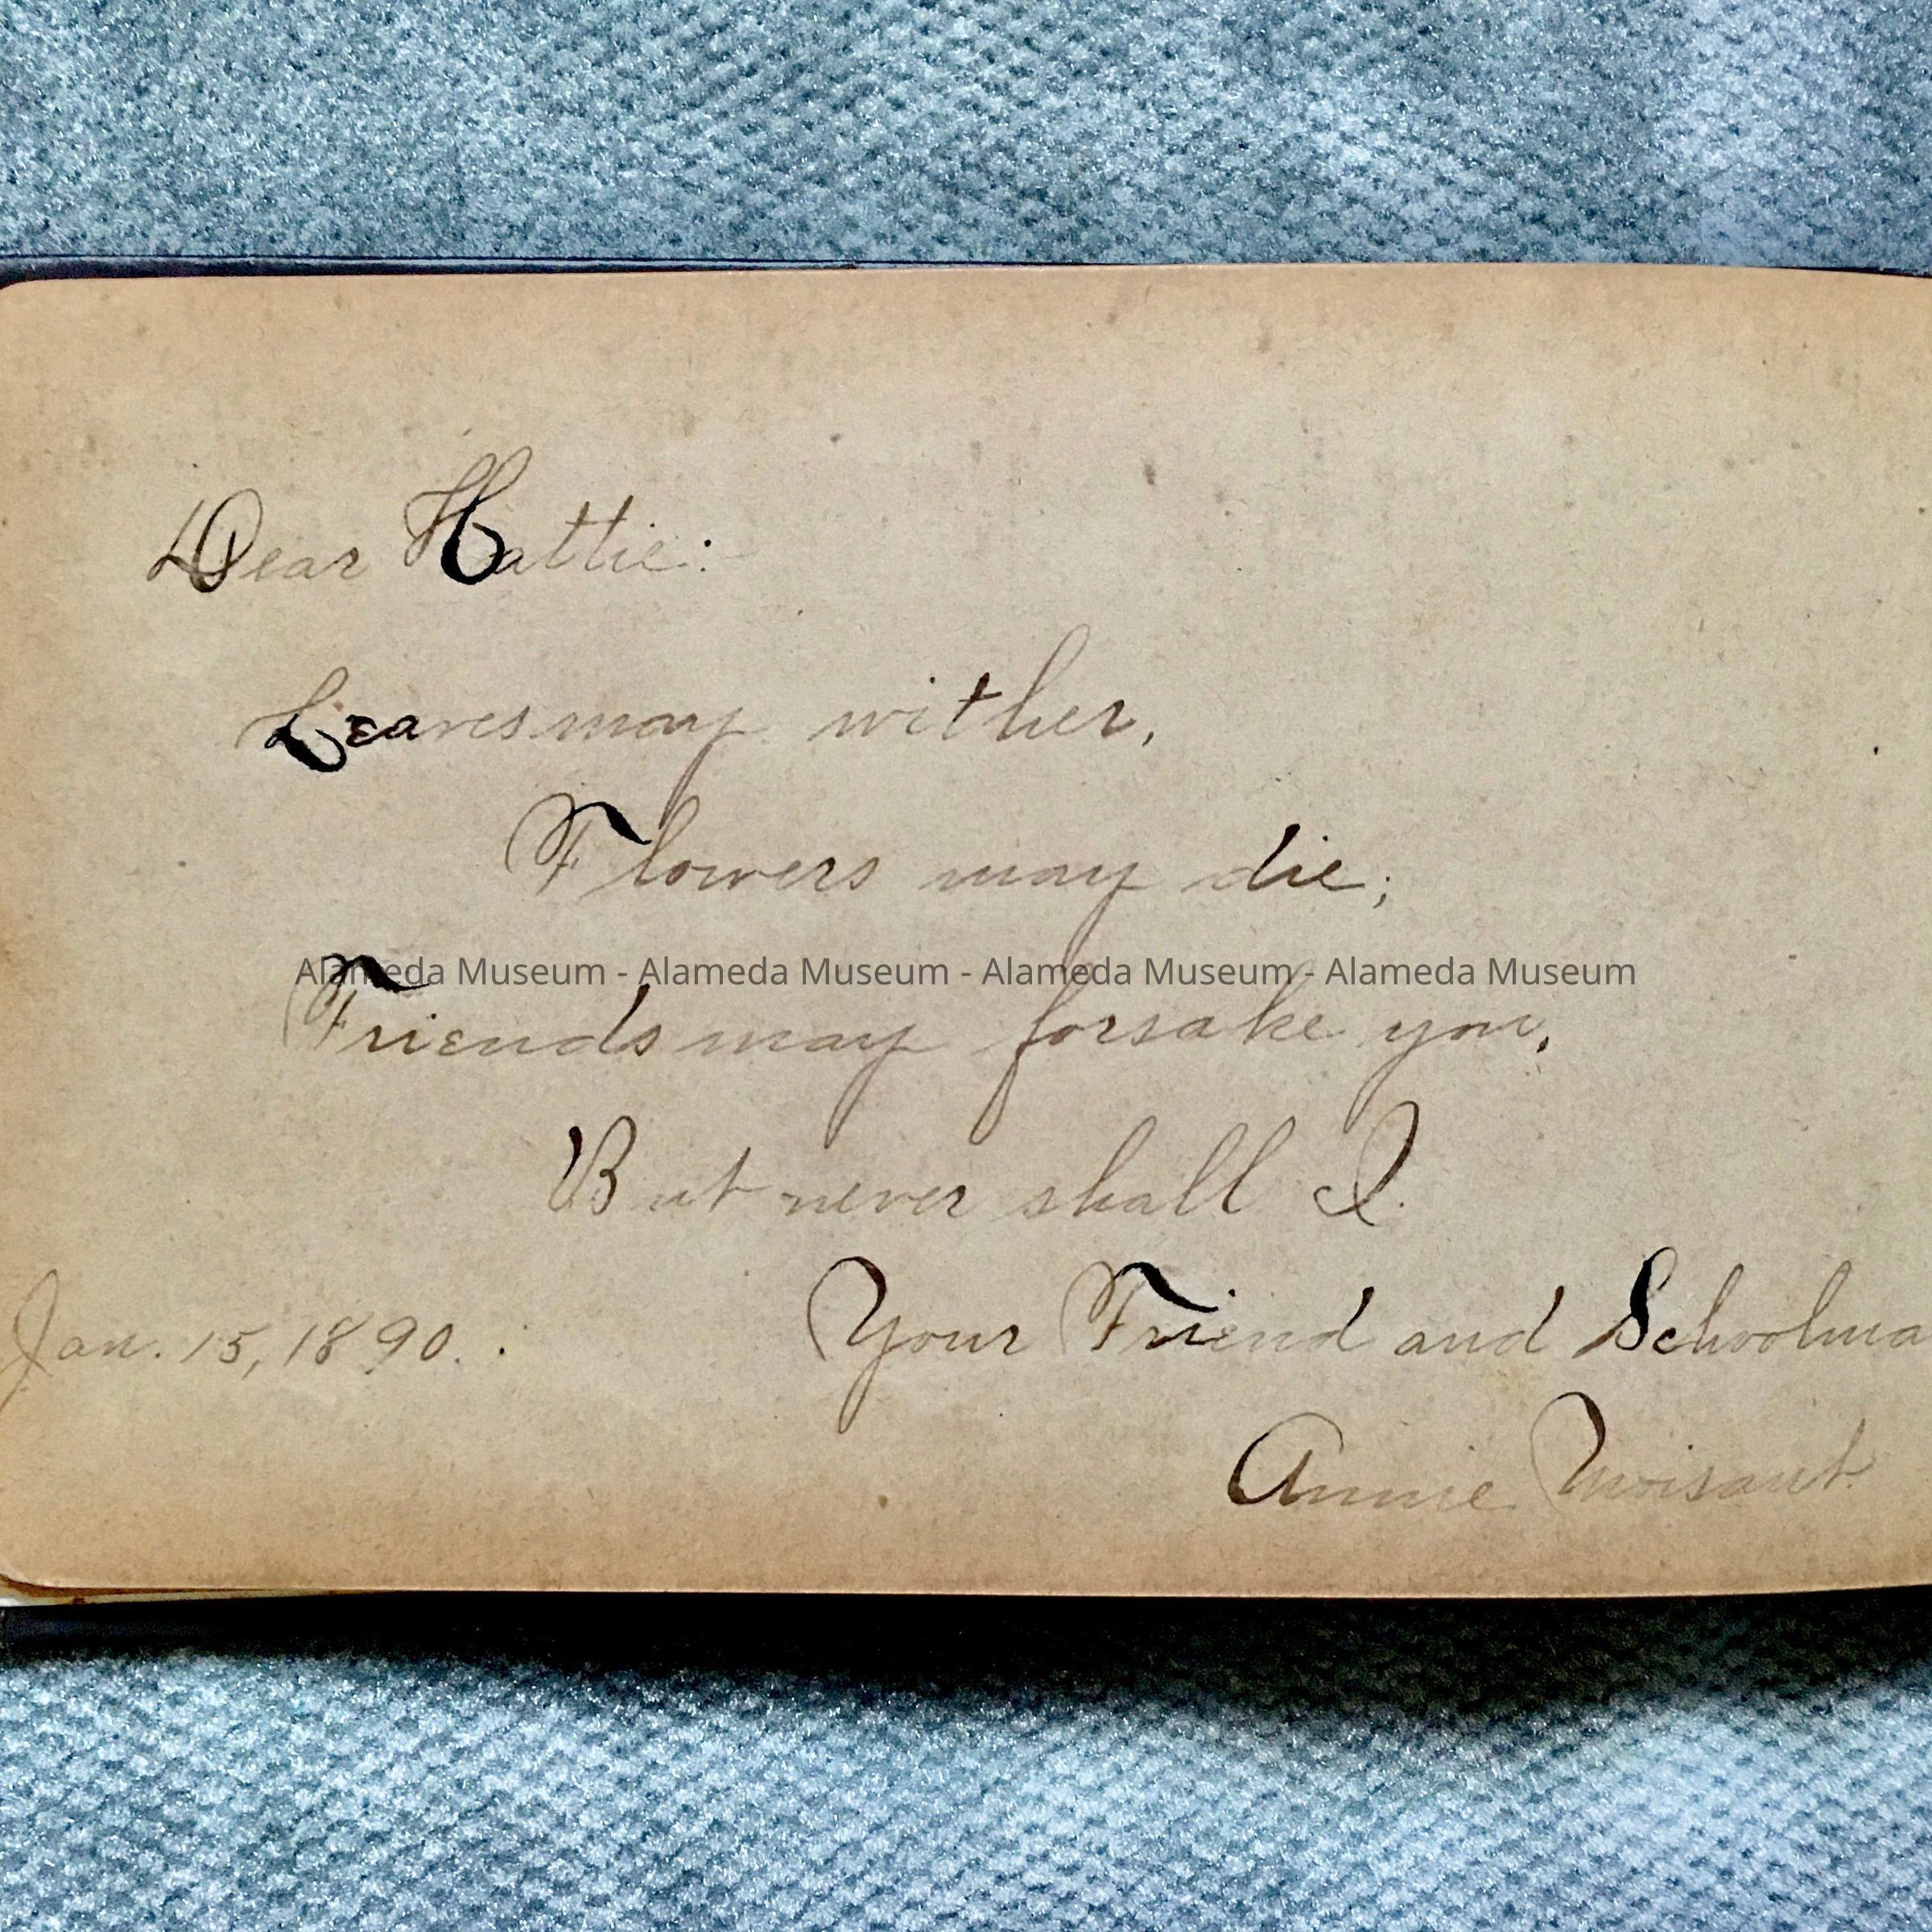 Dear Hattie:
Leaves may wither,
Flowers may die;
Alameda Museum - Alameda Museum - Alameda Museum - Alameda Museum
Friends may forsake you,
But never shall I.
Jan. 15, 1890. Your Friend and Schoolma
Annie Moisant.